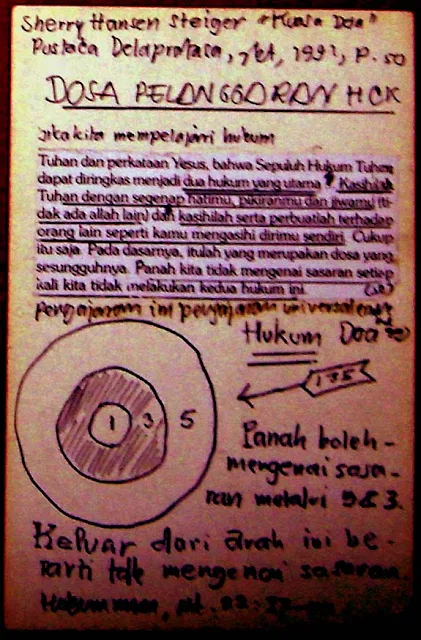 Sherry Hansen Steiger "Kuasa Doa"
Pustaca Delapratasa, Jkt, 1991, P. 50
DOSA PELANGGARAN HCK
Jika kita mempelajari hukum
Tuhan dan perkataan Yesus, bahwa Sepuluh Hukum Tuhan
dapat diringkas menjadi dua hukum yang utama Kasihilah
Tuhan dengan segenap hatimu, pikiranmu dan jiwamu (ti-
dak ada allah lain) dan kasihilah serta perbuatlah terhadap
orang lain seperti kamu mengasihi dirimu sendiri. Cukup
itu saja. Pada dasarnya, itulah yang merupakan dosa yang
sesungguhnya. Panah kita tidak mengenai sasaran setiap
kali kita tidak melakukan kedua hukum ini.
pengajaran ini pengajaran universal
Hukum Doa
135
1 3 5
Panah boleh
mengenai sasa-
ran melalui 5 & 3.
Keluar dari arah ini be-
rarti tdk mengenai sasaran.